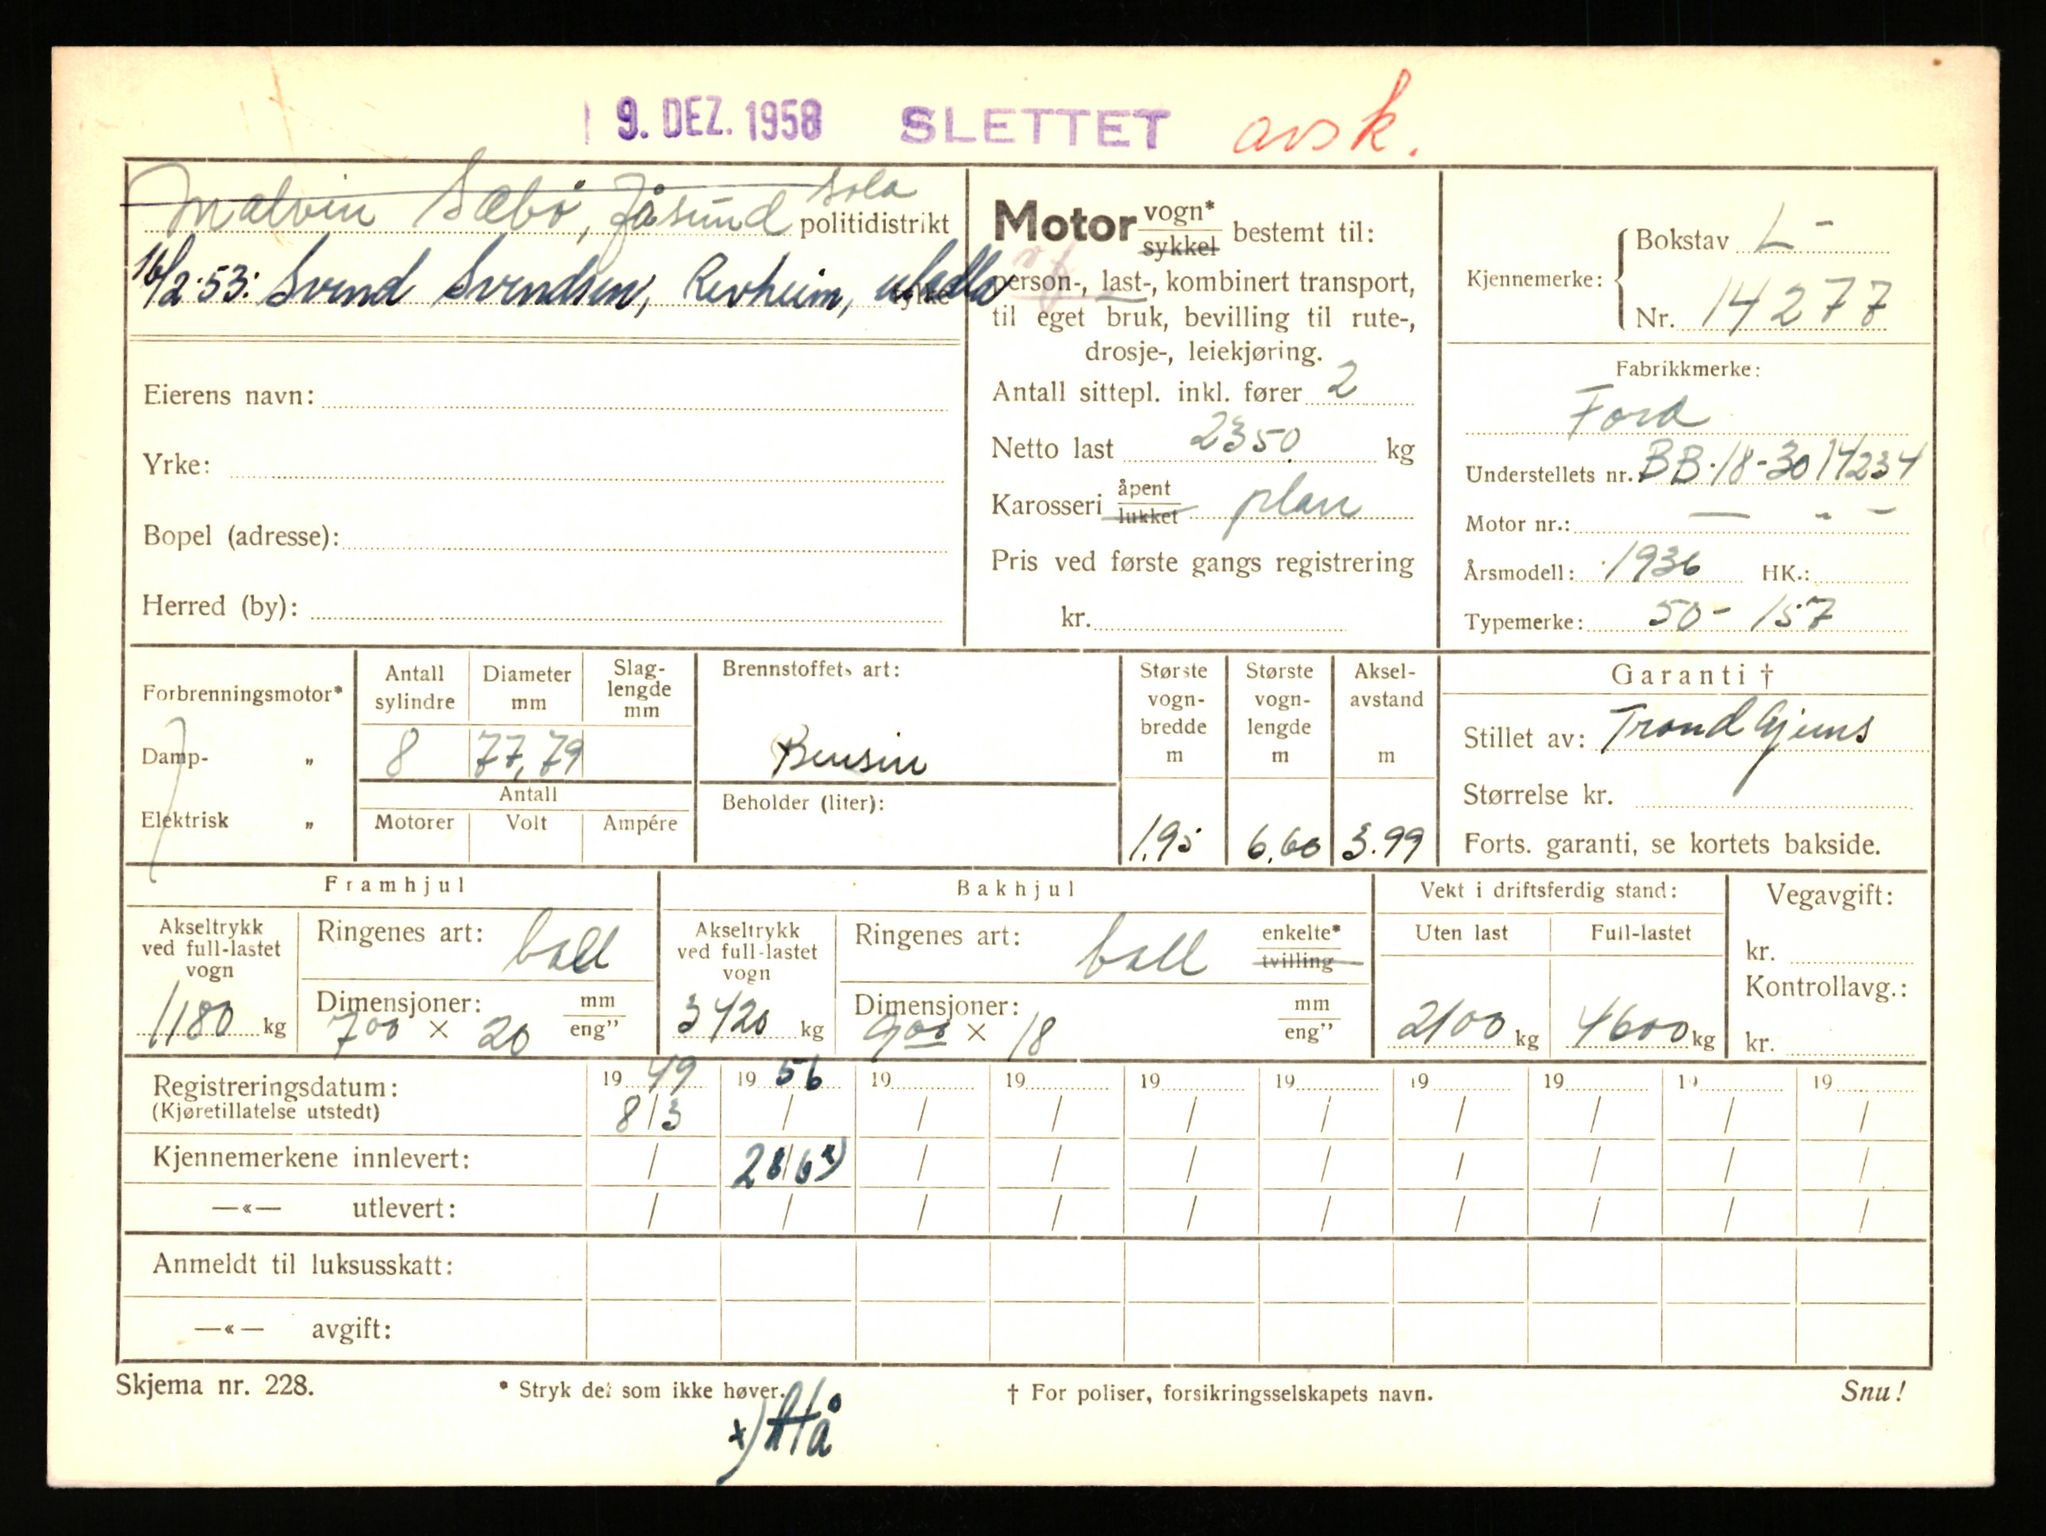 9. DEZ. 1958 SLETTET avsk.
Malvin Sæbø, Jåsund Sola politidistrikt
16/2-53: Svend Svendsen, Revheim, Madla
Eierens navn:
Yrke:
Bopel (adresse):
Herred (by):
Motor vogn* sykkel bestemt til:
person-, last-, kombinert transport,
til eget bruk, bevilling til rute-,
drosje-, leiekjøring.
Antall sittepl. inkl. fører 2
Netto last 2350 kg
Karosseri åpent lukket plan
Pris ved første gangs registrering
kr.
Kjennemerke: Bokstav L-
Nr. 14277
Fabrikkmerke:
Ford
Understellets nr. BB-18-3014234
Motor nr.: — " —
Årsmodell: 1936 HK.:
Typemerke: 50-157
Forbrenningsmotor*
Damp- "
Elektrisk "
Antall sylindre Diameter mm Slag-lengde mm
8 77,79
Antall
Motorer Volt Ampére
Brennstoffets art:
Bensin
Beholder (liter):
Største vogn-bredde m Største vogn-lengde m Aksel-avstand m
1.95 6.60 3.99
Garanti †
Stillet av: Trond Gjems
Størrelse kr.
Forts. garanti, se kortets bakside.
Framhjul
Akseltrykk ved full-lastet vogn
1180 kg
Ringenes art: ball
Dimensjoner: mm
7.00 × 20 eng"
Bakhjul
Akseltrykk ved full-lastet vogn
3420 kg
Ringenes art: ball enkelte* tvilling
Dimensjoner: mm
9.00 × 18 eng"
Vekt i driftsferdig stand:
Uten last Full-lastet
2100 kg 4600 kg
Vegavgift:
kr.
Kontrollavg.:
kr.
Registreringsdatum: 19 49 19 56 19 19 19 19 19 19 19 19
(Kjøretillatelse utstedt) 8/3 / / / / / / / / /
Kjennemerkene innlevert: / 28/6 x) / / / / / / / /
—«— utlevert: / / / / / / / / / /
Anmeldt til luksusskatt:
—«— avgift:
Skjema nr. 228. * Stryk det som ikke høver. † For poliser, forsikringsselskapets navn. Snu!
x)